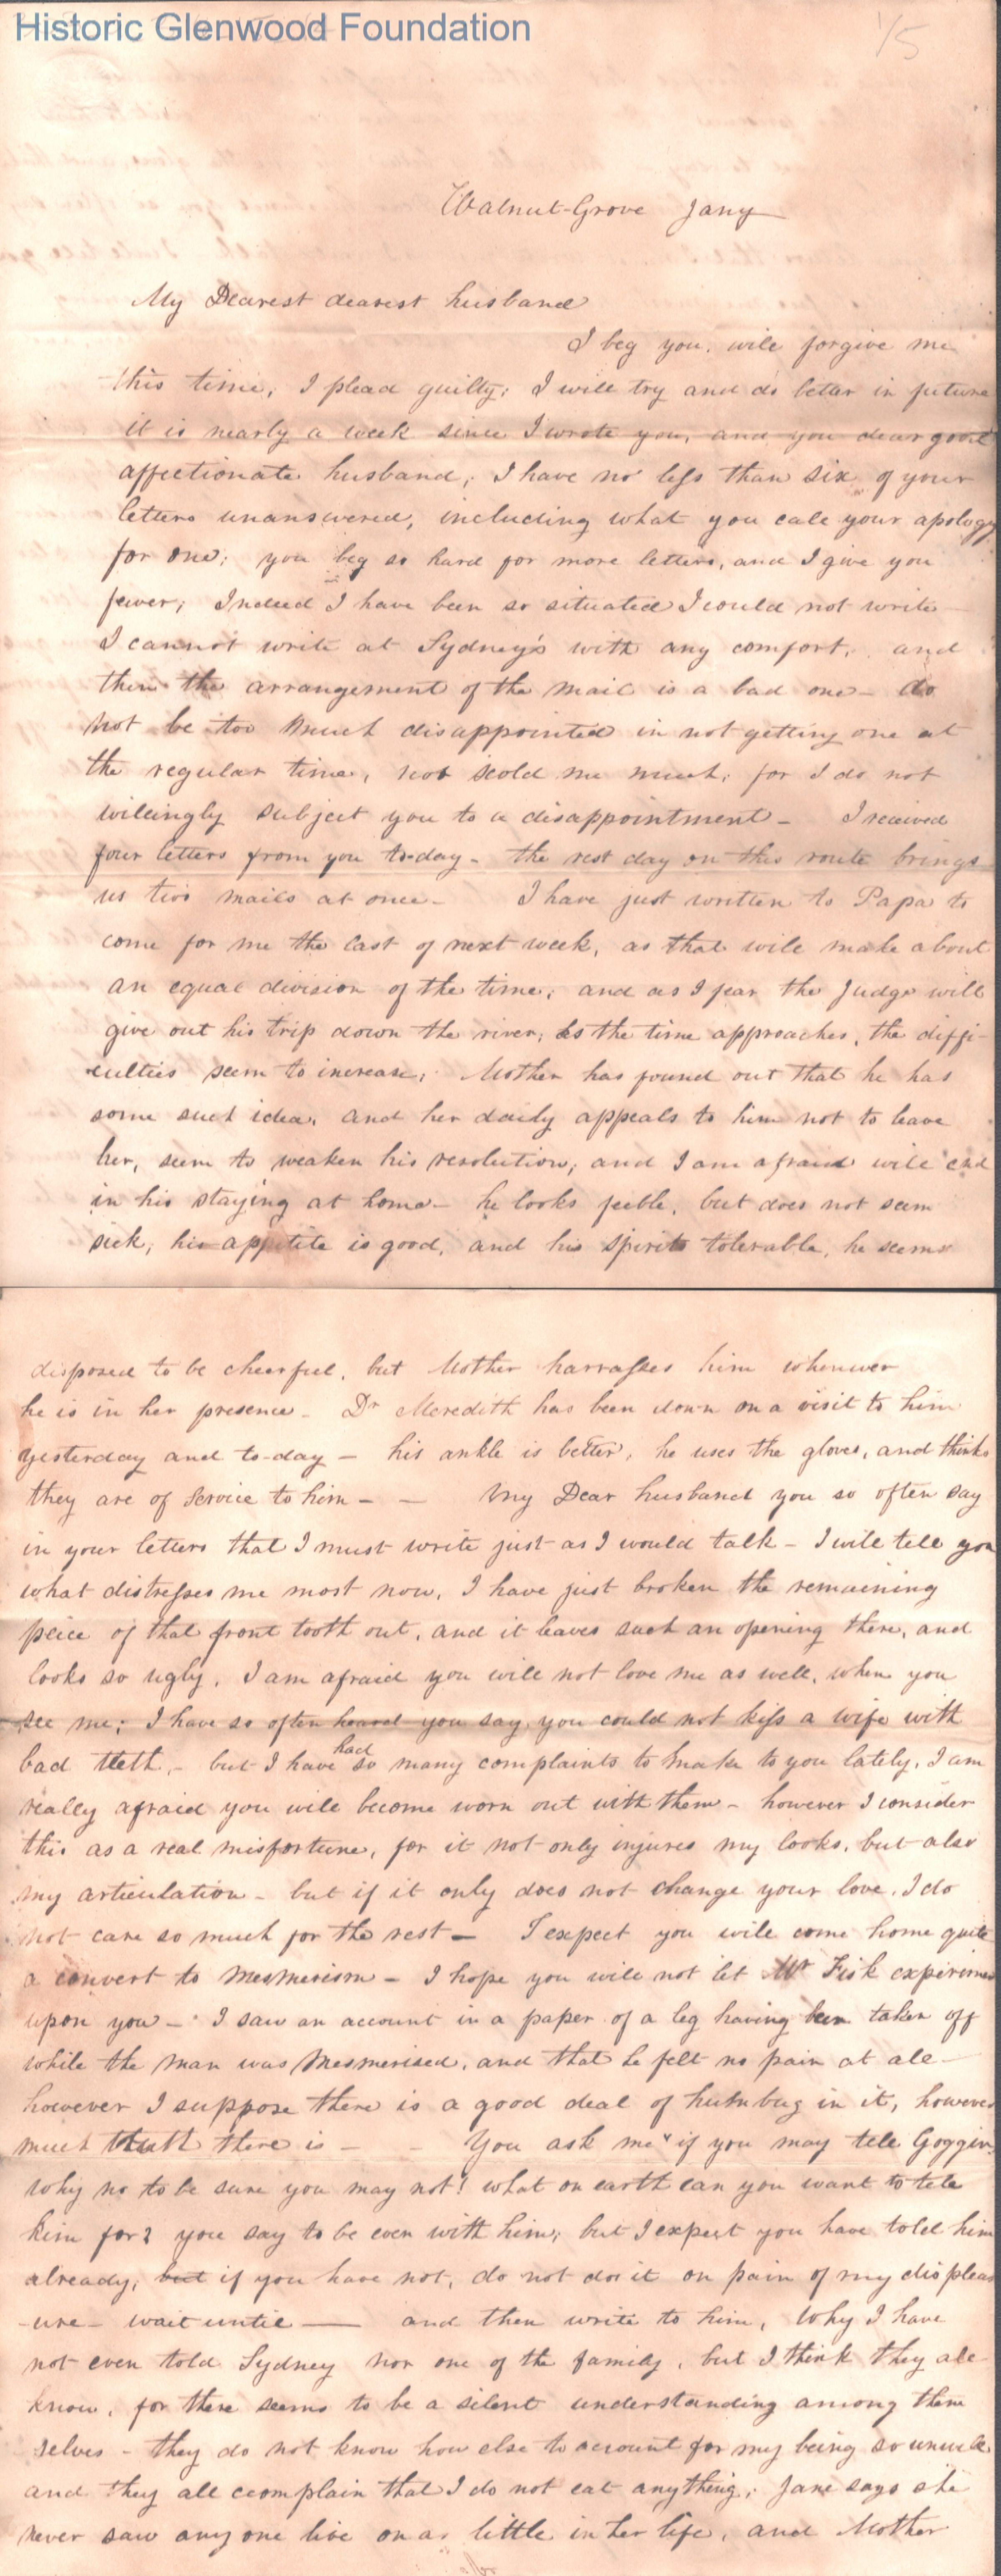 Historic Glenwood Foundation
1/5
Walnut-Grove Jany
My Dearest dearest husband
I beg you, will forgive me
this time, I plead guilty; I will try and do better in future
it is nearly a week since I wrote you, and you dear good
affectionate husband, I have no less than six of your
letters unanswered, including what you call your apology
for one; you beg so hard for more letters, and I give you
fewer; Indeed I have been so situated I could not write
I cannot write at Sydney's with any comfort, and
then the arrangement of the mail is a bad one - do
not be too much disappointed in not getting one at
the regular time, nor scold me much, for I do not
willingly subject you to a disappointment - I received
four letters from you to-day - the rest day on this route brings
us two mails at once - I have just written to Papa to
come for me the last of next week, as that will make about
an equal division of the time; and as I fear the Judge will
give out his trip down the river; As the time approaches, the diffi-
culties seem to increase; Mother has found out that he has
some such idea, and her daily appeals to him not to leave
her, seem to weaken his resolution, and I am afraid will end
in his staying at home - he looks feeble, but does not seem
sick, his appetite is good, and his spirits tolerable, he seems
disposed to be cheerful, but Mother harrasses him whenever
he is in her presence - Dr Meredith has been down on a visit to him
yesterday and to-day - his ankle is better, he uses the gloves, and thinks
they are of Service to him - - My Dear husband you so often say
in your letters that I must write just as I would talk - I will tell you
what distresses me most now, I have just broken the remaining
peice of that front tooth out, and it leaves such an opening there, and
looks so ugly, I am afraid you will not love me as well, when you
see me; I have so often heard you say, you could not kiss a wife with
bad teeth, - but I have had so many complaints to make to you lately, I am
really afraid you will become worn out with them - however I consider
this as a real misfortune, for it not only injures my looks, but also
my articulation - but if it only does not change your love, I do
not care so much for the rest - I expect you will come home quite
a convert to Mesmerism - I hope you will not let Mr Fisk experiment
upon you - I saw an account in a paper of a leg having been taken off
while the man was Mesmerised, and that he felt no pain at all -
however I suppose there is a good deal of humbug in it, however
much truth there is - - You ask me if you may tell Goggin
why no to be sure you may not! what on earth can you want to tell
him for? you say to be even with him; but I expect you have told him
already, but if you have not, do not do it on pain of my displeas
-ure - wait until — and then write to him, Why I have
not even told Sydney nor one of the family, but I think they all
know, for there seems to be a silent understanding among them
selves - they do not know how else to account for my being so unwell
and they all complain that I do not eat anything; Jane says she
never saw any one live on as little in her life, and Mother